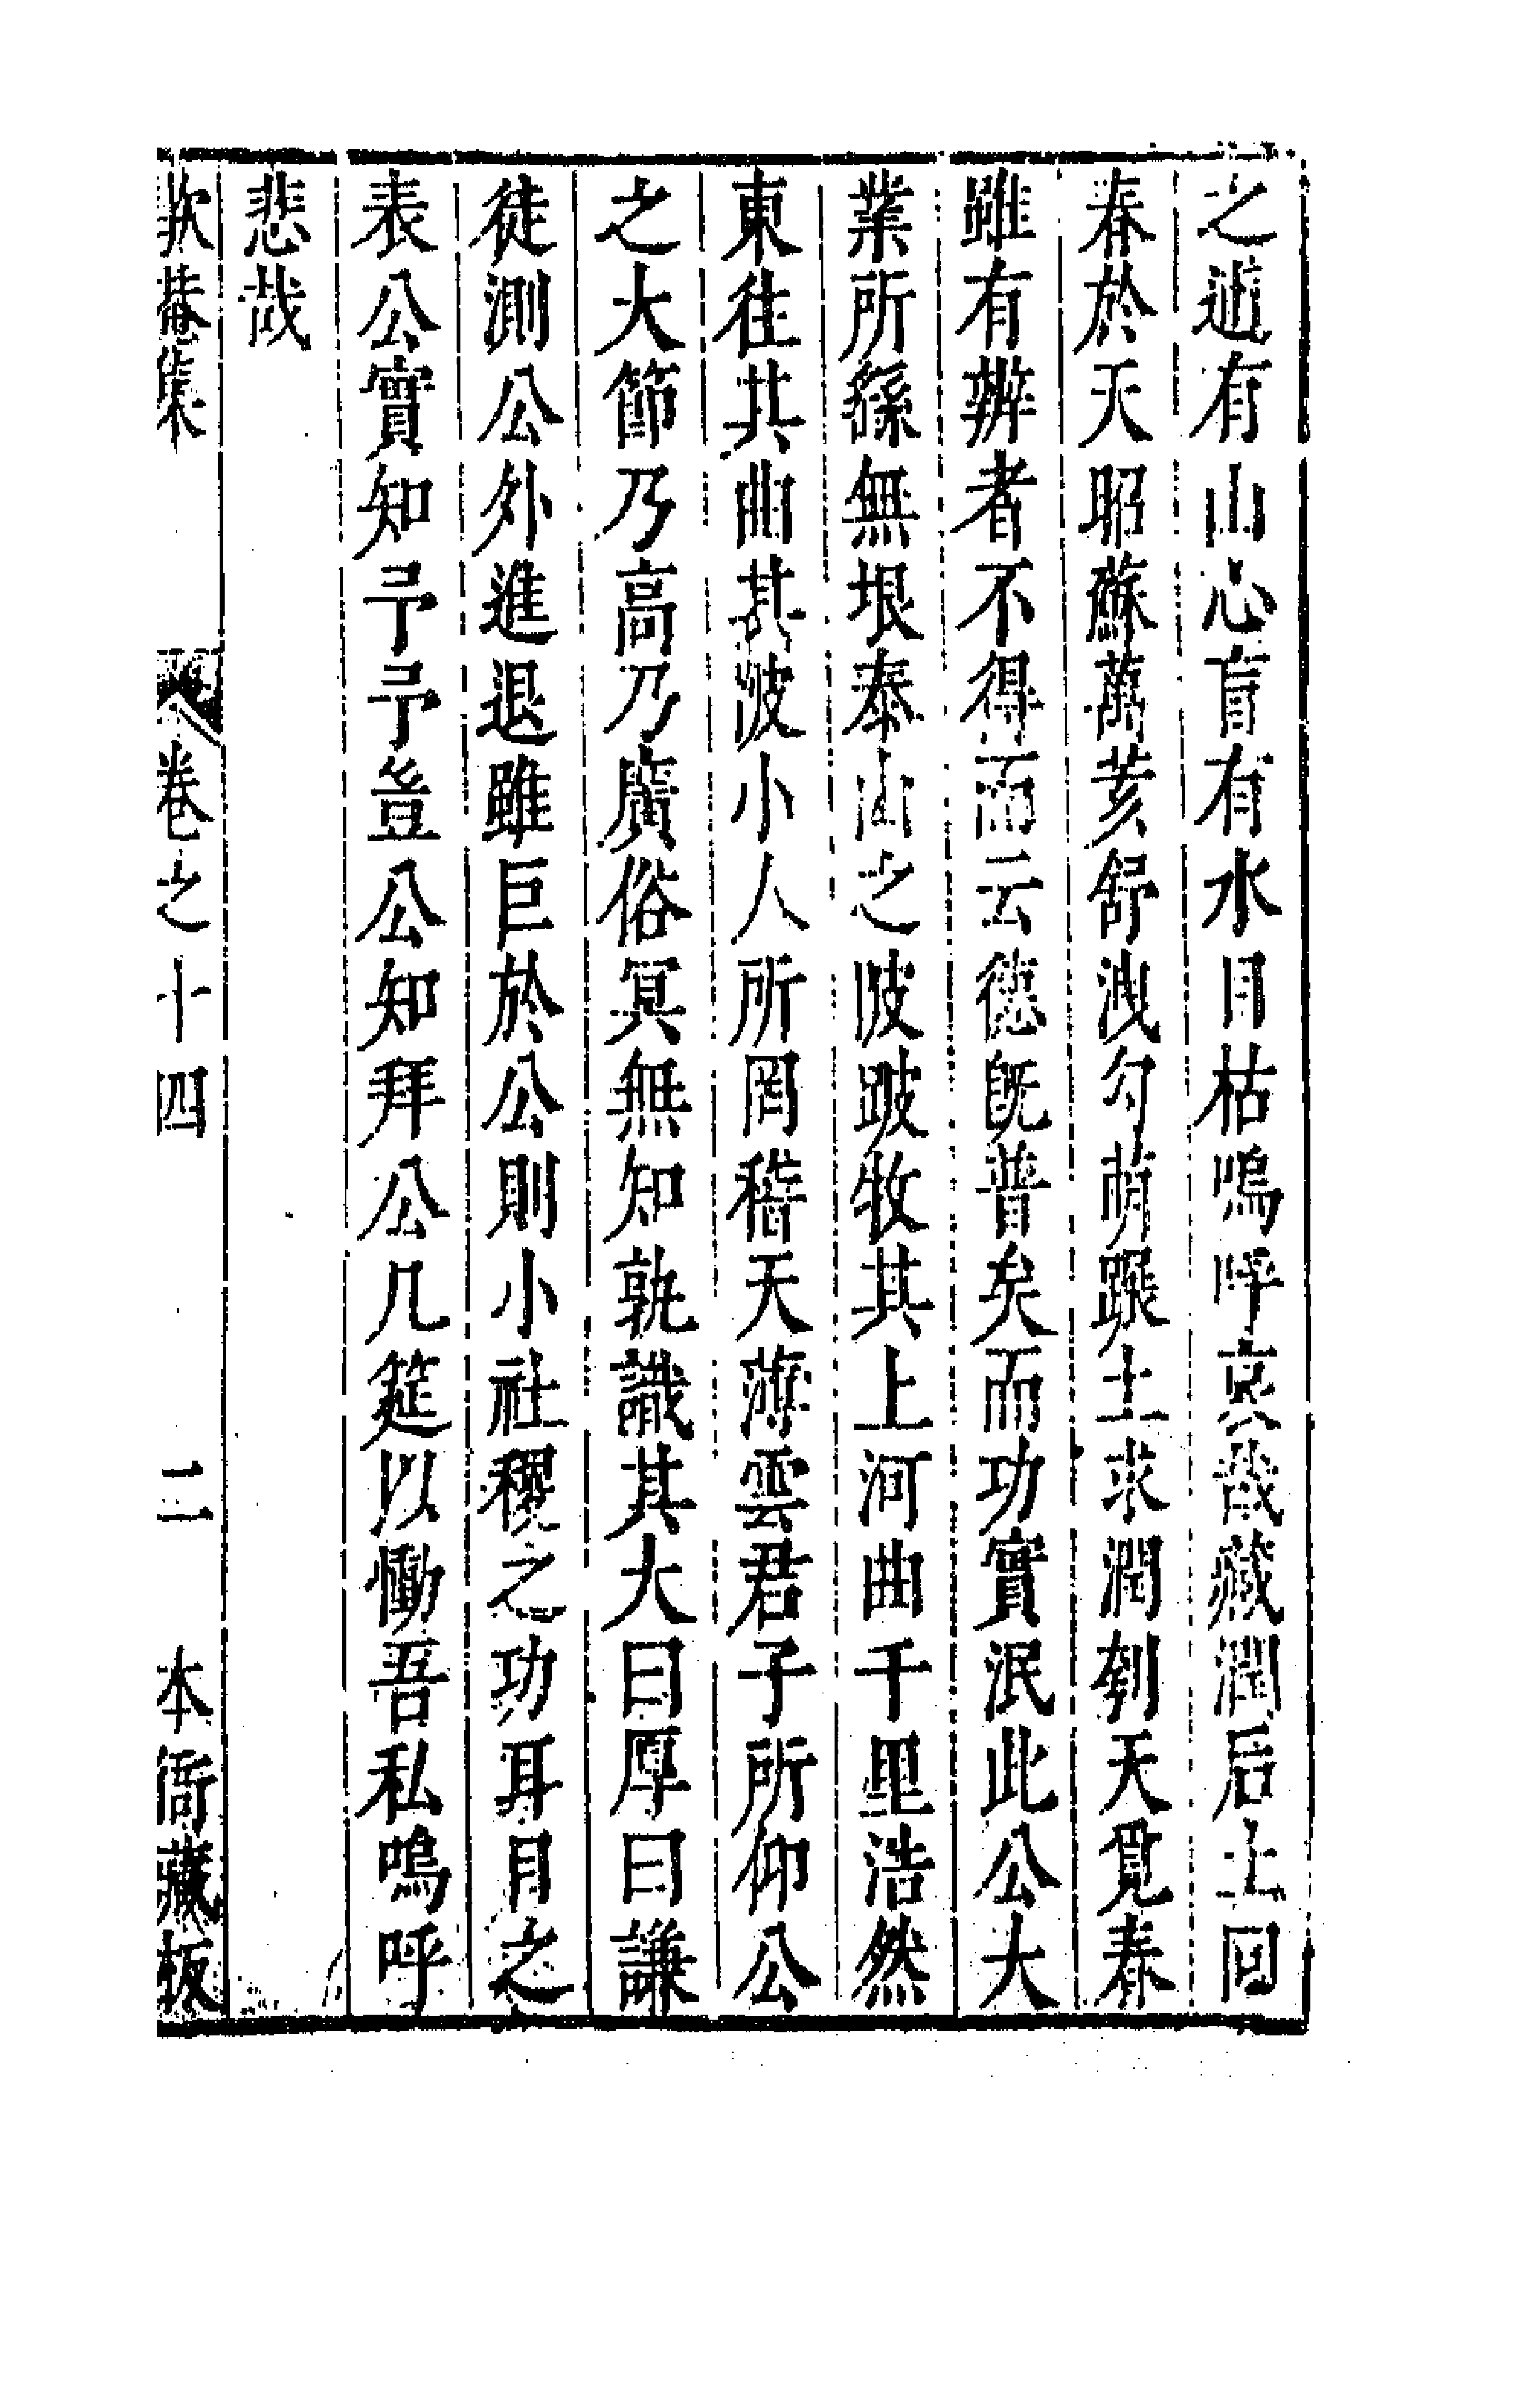 之逝有山心盲有水目枯嗚呼哀哉藏潤后土回
春於天昭蘇萬荄舒洩勾萌蹑土求潤刳天覓春
雖有辨者不得而云德旣普矣而功實泯此公大
業所繇無垠泰山之陂跛牧其上河曲千里浩然
東往其曲其波小人所罔稽天薄雲君子所仰公
之大節乃高乃廣俗冥無知孰識其大曰厚曰謙
徒測公外進退雖巨於公則小社稷之功耳目之
表公實知予予豈公知拜公几筵以慟吾私嗚呼
悲哉
歇菴集 卷之十四 二 本衙藏板